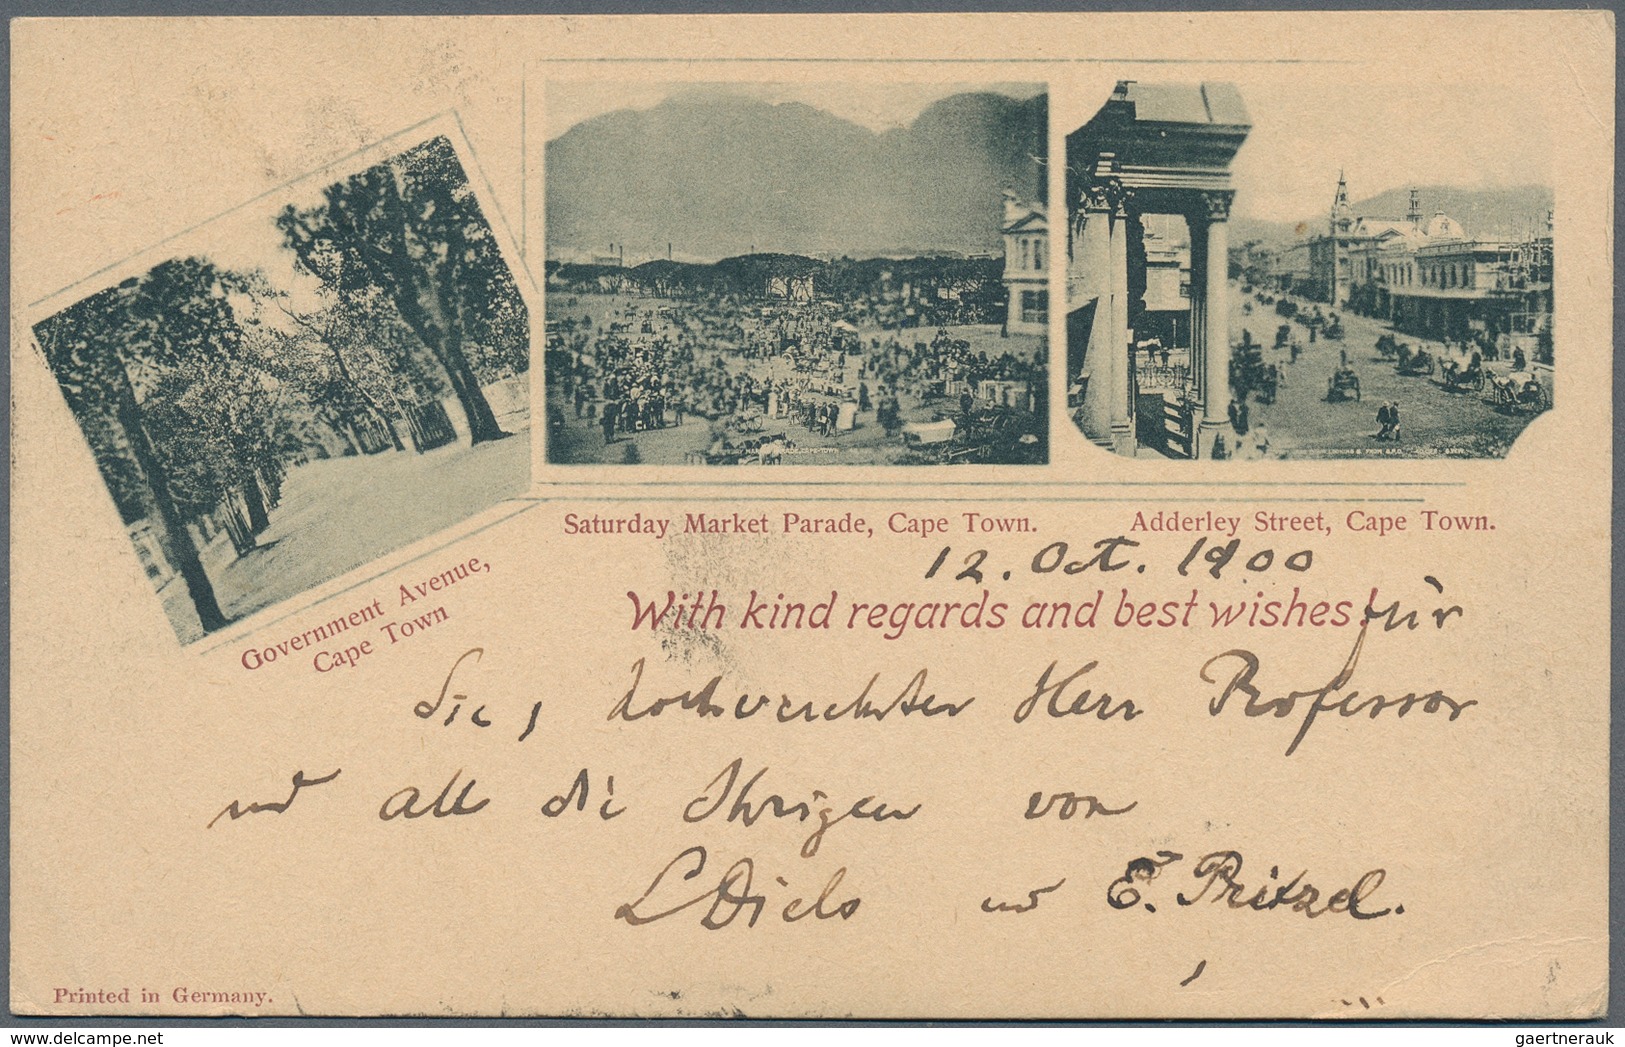 Saturday Market Parade, Cape Town.
Adderley Street, Cape Town.
Government Avenue,
Cape Town
12. Oct. 1900
With kind regards and best wishes! für
Sie, hochverehrter Herr Professor
und all die Ihrigen von
L Diels und E. Pritzel.
Printed in Germany.
www.delcampe.net
gaertnerauk